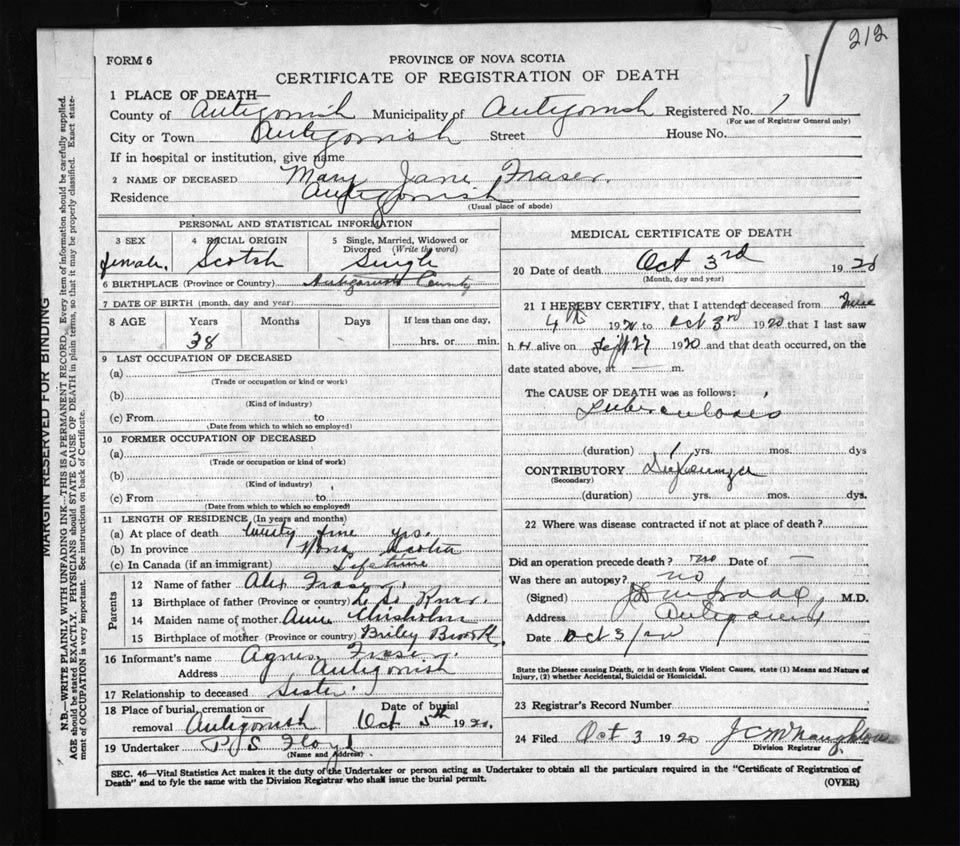 212
FORM 6
PROVINCE OF NOVA SCOTIA
CERTIFICATE OF REGISTRATION OF DEATH
1 PLACE OF DEATH—
County of Antigonish Municipality of Antigonish Registered No. 1
(For use of Registrar General only)
City or Town Antigonish Street House No.
If in hospital or institution, give name
2 NAME OF DECEASED Mary Jane Fraser.
Residence Antigonish
(Usual place of abode)
PERSONAL AND STATISTICAL INFORMATION
3 SEX 4 RACIAL ORIGIN 5 Single, Married, Widowed or Divorced (Write the word)
female. Scotch Single
6 BIRTHPLACE (Province or Country) Antigonish County
7 DATE OF BIRTH (month, day and year)
8 AGE Years Months Days If less than one day,
38 hrs. or min.
9 LAST OCCUPATION OF DECEASED
(a)
(Trade or occupation or kind or work)
(b)
(Kind of industry)
(c) From to
(Date from which to which so employed)
10 FORMER OCCUPATION OF DECEASED
(a)
(Trade or occupation or kind of work)
(b)
(Kind of industry)
(c) From to
(Date from which to which so employed)
11 LENGTH OF RESIDENCE (In years and months)
(a) At place of death twenty five yrs.
(b) In province Nova Scotia
(c) In Canada (if an immigrant) Lifetime
Parents
12 Name of father Alex Fraser.
13 Birthplace of father (Province or country)
14 Maiden name of mother Annie Chisholm
15 Birthplace of mother (Province or country) Briley Brook
16 Informant's name Agnes Fraser.
Address Antigonish
17 Relationship to deceased Sister.
18 Place of burial, cremation or Date of burial
removal Antigonish Oct 5th 1920.
19 Undertaker P S Floyd.
(Name and Address)
MEDICAL CERTIFICATE OF DEATH
20 Date of death Oct 3rd 1920
(Month, day and year)
21 I HEREBY CERTIFY, that I attended deceased from June
4th 1920 to Oct 3rd 1920 that I last saw
h er alive on Sept 27 1920 and that death occurred, on the
date stated above, at — m.
The CAUSE OF DEATH was as follows:
Tuberculosis
(duration) 1 yrs. mos. dys
CONTRIBUTORY
(Secondary)
(duration) yrs. mos. dys.
22 Where was disease contracted if not at place of death?
Did an operation precede death? no Date of —
Was there an autopsy? no
(Signed) M.D.
Address Antigonish
Date Oct 3/20
State the Disease causing Death, or in death from Violent Causes, state (1) Means and Nature of
Injury, (2) whether Accidental, Suicidal or Homicidal.
23 Registrar's Record Number
24 Filed Oct 3 1920 J C McNaughton
Division Registrar
SEC. 46—Vital Statistics Act makes it the duty of the Undertaker or person acting as Undertaker to obtain all the particulars required in the "Certificate of Registration of
Death" and to fyle the same with the Division Registrar who shall issue the burial permit.
(OVER)
MARGIN RESERVED FOR BINDING
N.B.—WRITE PLAINLY WITH UNFADING INK—THIS IS A PERMANENT RECORD. Every item of information should be carefully supplied.
AGE should be stated EXACTLY. PHYSICIANS should STATE CAUSE OF DEATH in plain terms, so that it may be properly classified. Exact state-
ment of OCCUPATION is very important. See instructions on back of Certificate.